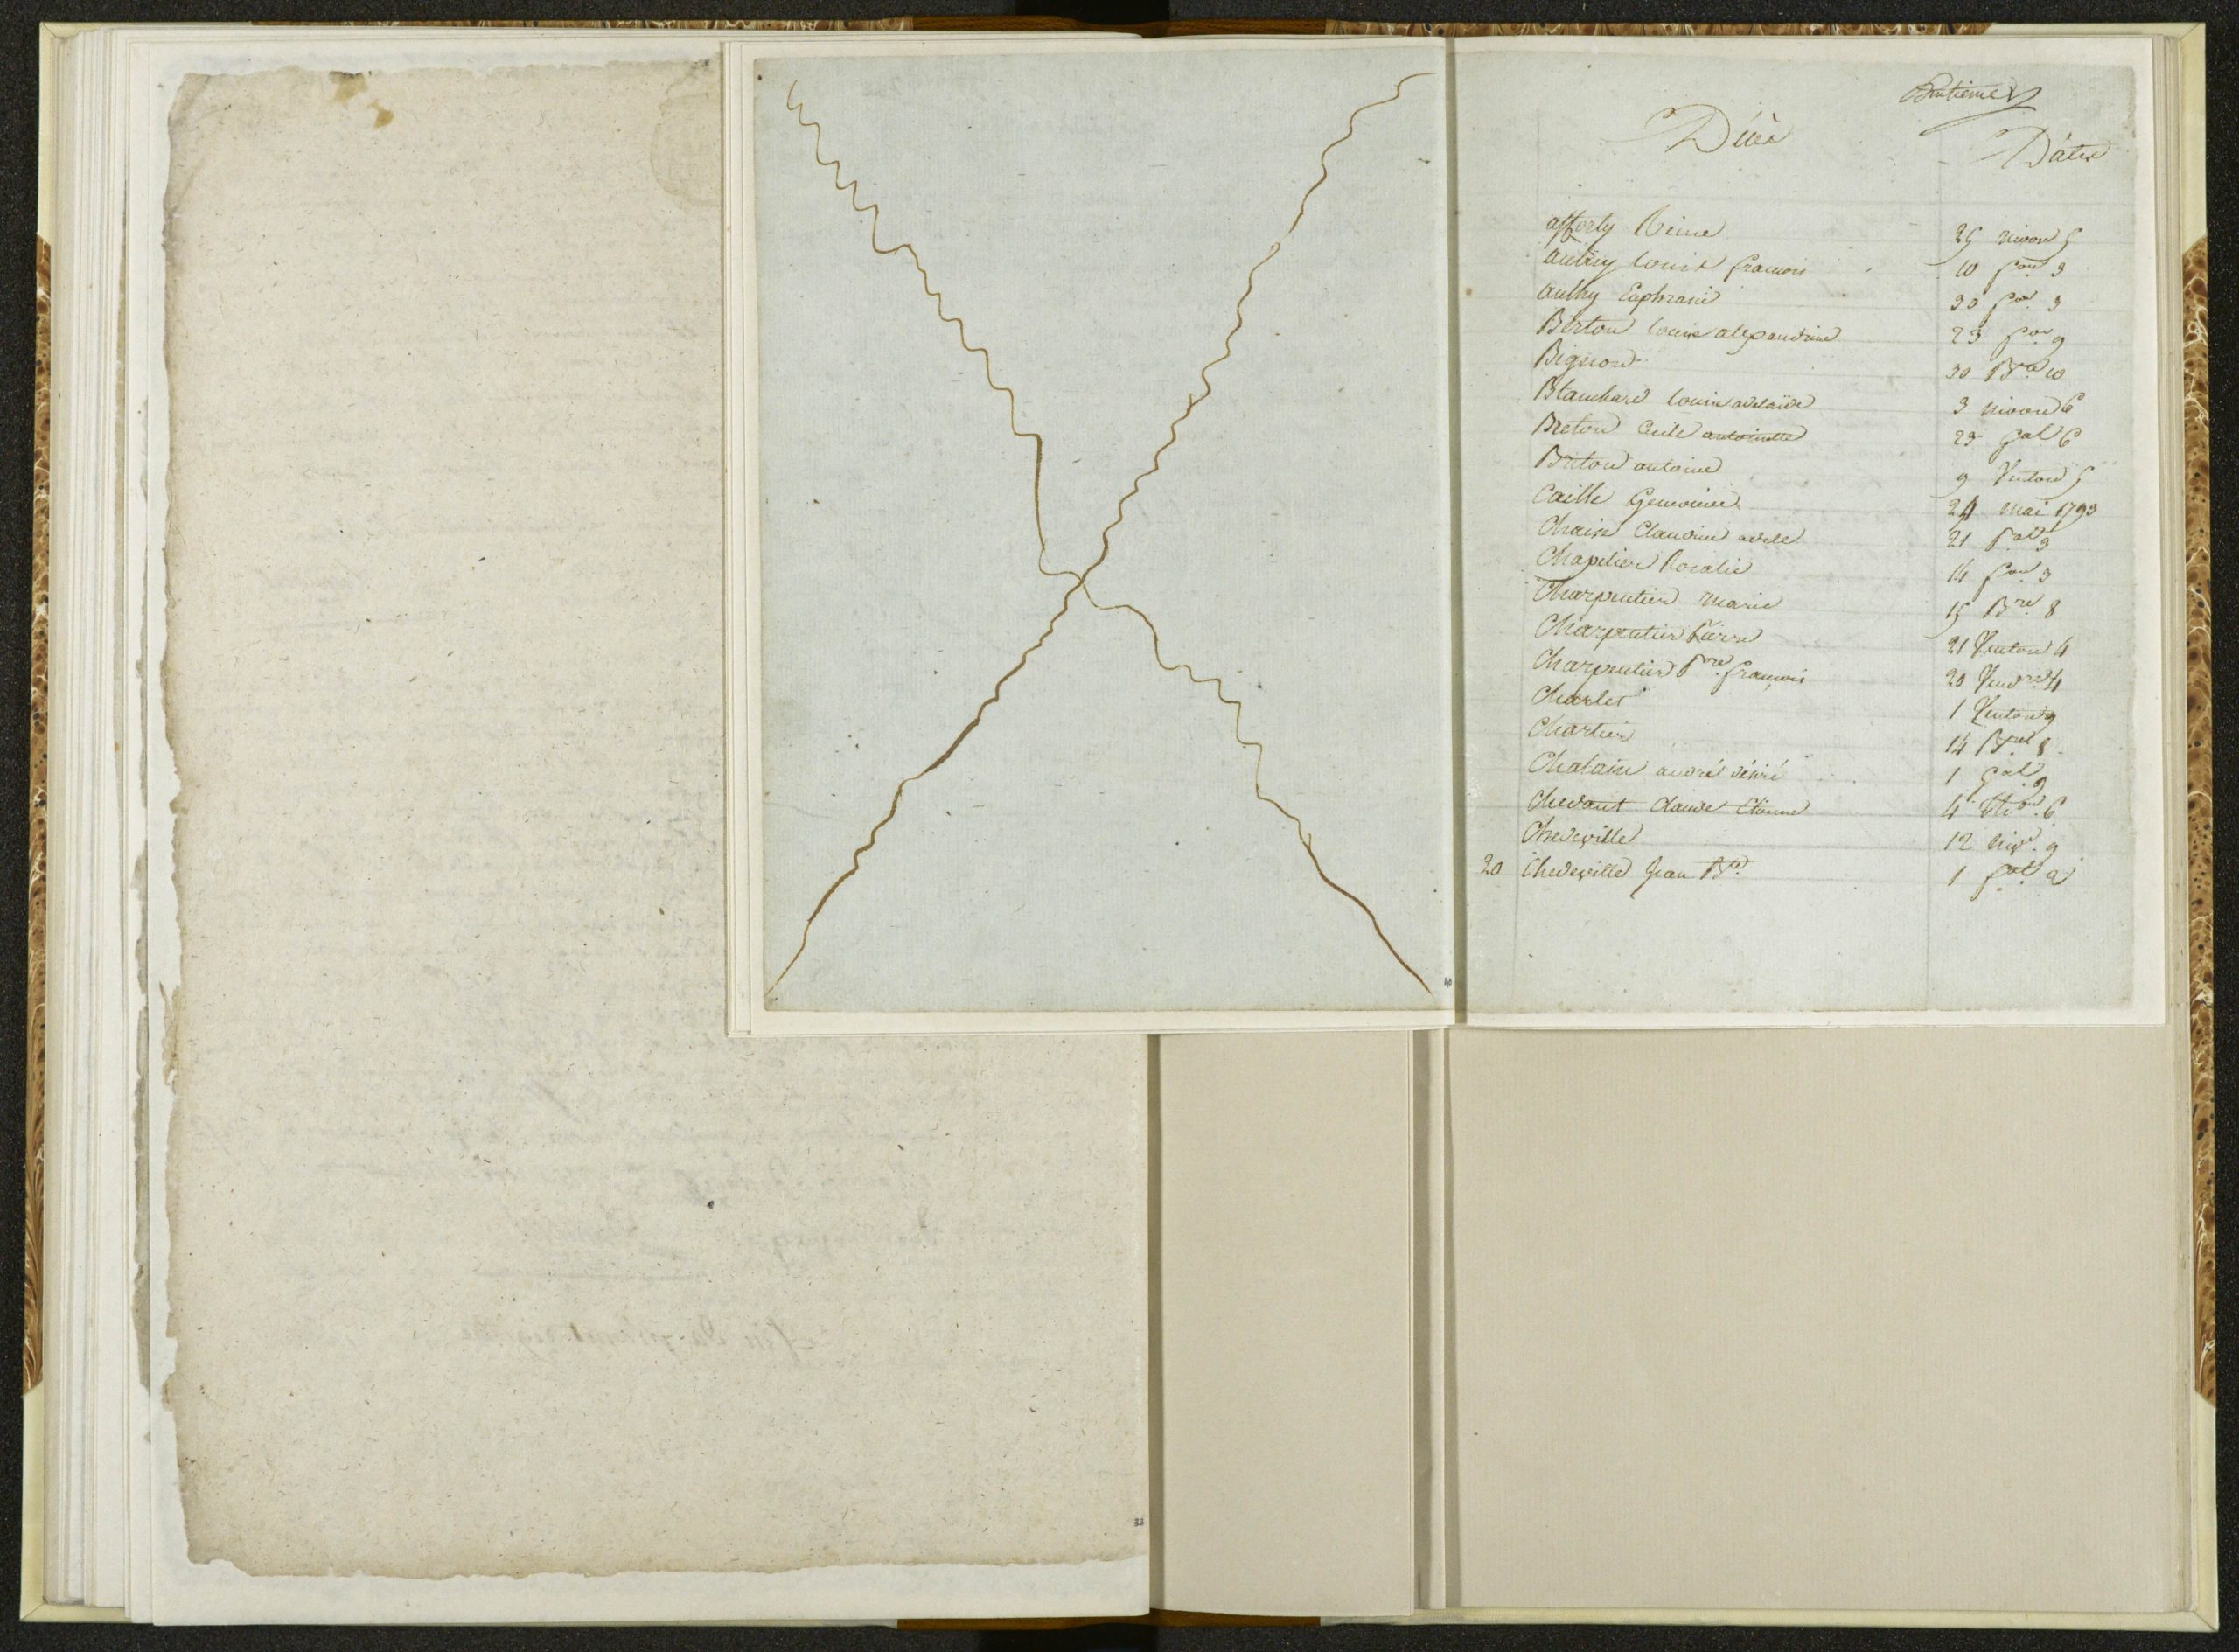 Décès
Dates
afforty Reine 25 nivose 5
aubry louis francois 10 3
aubry Euphrasie 30 3
Berton louise alexandrine 23 9
Bignon 30 Bre 10
Blanchard louise adelaide 3 nivose 6
Breton Cecile antoinette 23 gal 6
Breton antoine 9 Ventose 5
Caille Genevieve 24 mai 1793
Chaise Claudine adele 21 3
Chapelier Rosalie 14 3
Charpentier Marie 15 Bre 8
Charpentier Pierre 21 Ventose 4
Charpentier Pre francois 20 Vendre 4
Charles 1 Ventose 9
Chartier 14 8
Chatain andré désiré 1 gal 9
Chedaut Claude Etienne 4 6
Chedeville 12 niv. 9
20 Chedeville Jean Bte 1 2
40